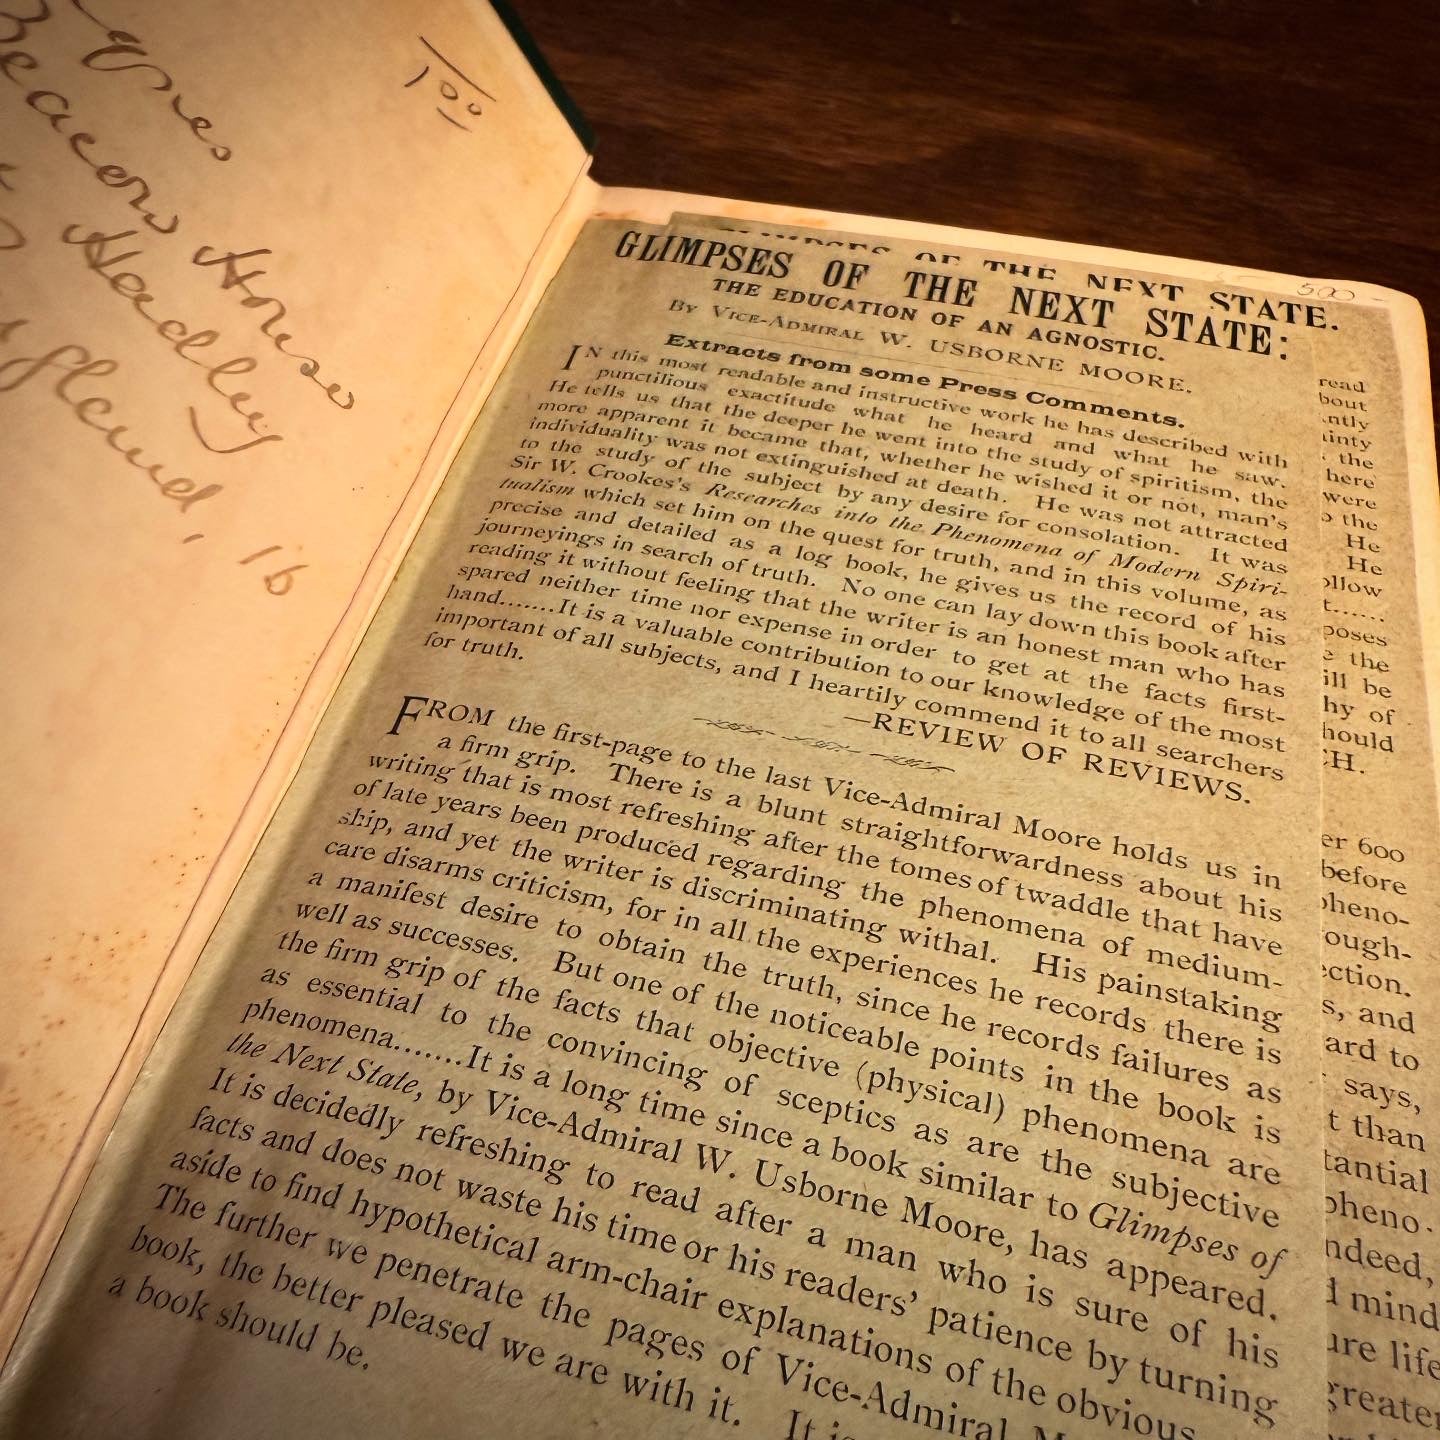 Beacon House
Hadley
16
100
500
OF THE NEXT STATE.
GLIMPSES OF THE NEXT STATE:
THE EDUCATION OF AN AGNOSTIC.
By Vice-Admiral W. USBORNE MOORE.
Extracts from some Press Comments.
IN this most readable and instructive work he has described with
punctilious exactitude what he heard and what he saw.
He tells us that the deeper he went into the study of spiritism, the
more apparent it became that, whether he wished it or not, man's
individuality was not extinguished at death. He was not attracted
to the study of the subject by any desire for consolation. It was
Sir W. Crookes's Researches into the Phenomena of Modern Spiri-
tualism which set him on the quest for truth, and in this volume, as
precise and detailed as a log book, he gives us the record of his
journeyings in search of truth. No one can lay down this book after
reading it without feeling that the writer is an honest man who has
spared neither time nor expense in order to get at the facts first-
hand.......It is a valuable contribution to our knowledge of the most
important of all subjects, and I heartily commend it to all searchers
for truth.
—REVIEW OF REVIEWS.
FROM the first-page to the last Vice-Admiral Moore holds us in
a firm grip. There is a blunt straightforwardness about his
writing that is most refreshing after the tomes of twaddle that have
of late years been produced regarding the phenomena of medium-
ship, and yet the writer is discriminating withal. His painstaking
care disarms criticism, for in all the experiences he records there is
a manifest desire to obtain the truth, since he records failures as
well as successes. But one of the noticeable points in the book is
the firm grip of the facts that objective (physical) phenomena are
as essential to the convincing of sceptics as are the subjective
phenomena.......It is a long time since a book similar to Glimpses of
the Next State, by Vice-Admiral W. Usborne Moore, has appeared.
It is decidedly refreshing to read after a man who is sure of his
facts and does not waste his time or his readers' patience by turning
aside to find hypothetical arm-chair explanations of the obvious.
The further we penetrate the pages of Vice-Admiral
book, the better pleased we are with it. It is
a book should be.
read
bout
ntly
ainty
the
here
were
o the
He
He
ollow
t......
poses
e the
ill be
hy of
hould
CH.
er 600
before
pheno-
ough-
ection.
s, and
ard to
says,
t than
tantial
pheno-
ndeed,
d mind
ure life
greater